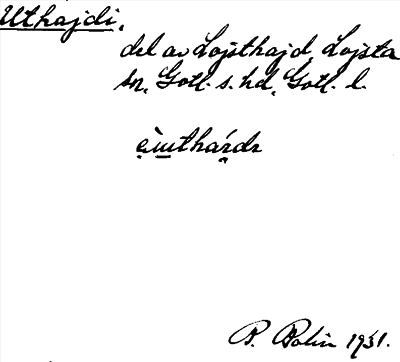 Uthajdi,
del av Lojsthajd, Lojsta
sn, Gotl. s. hd, Gotl. l.
P. Bolin 1931.